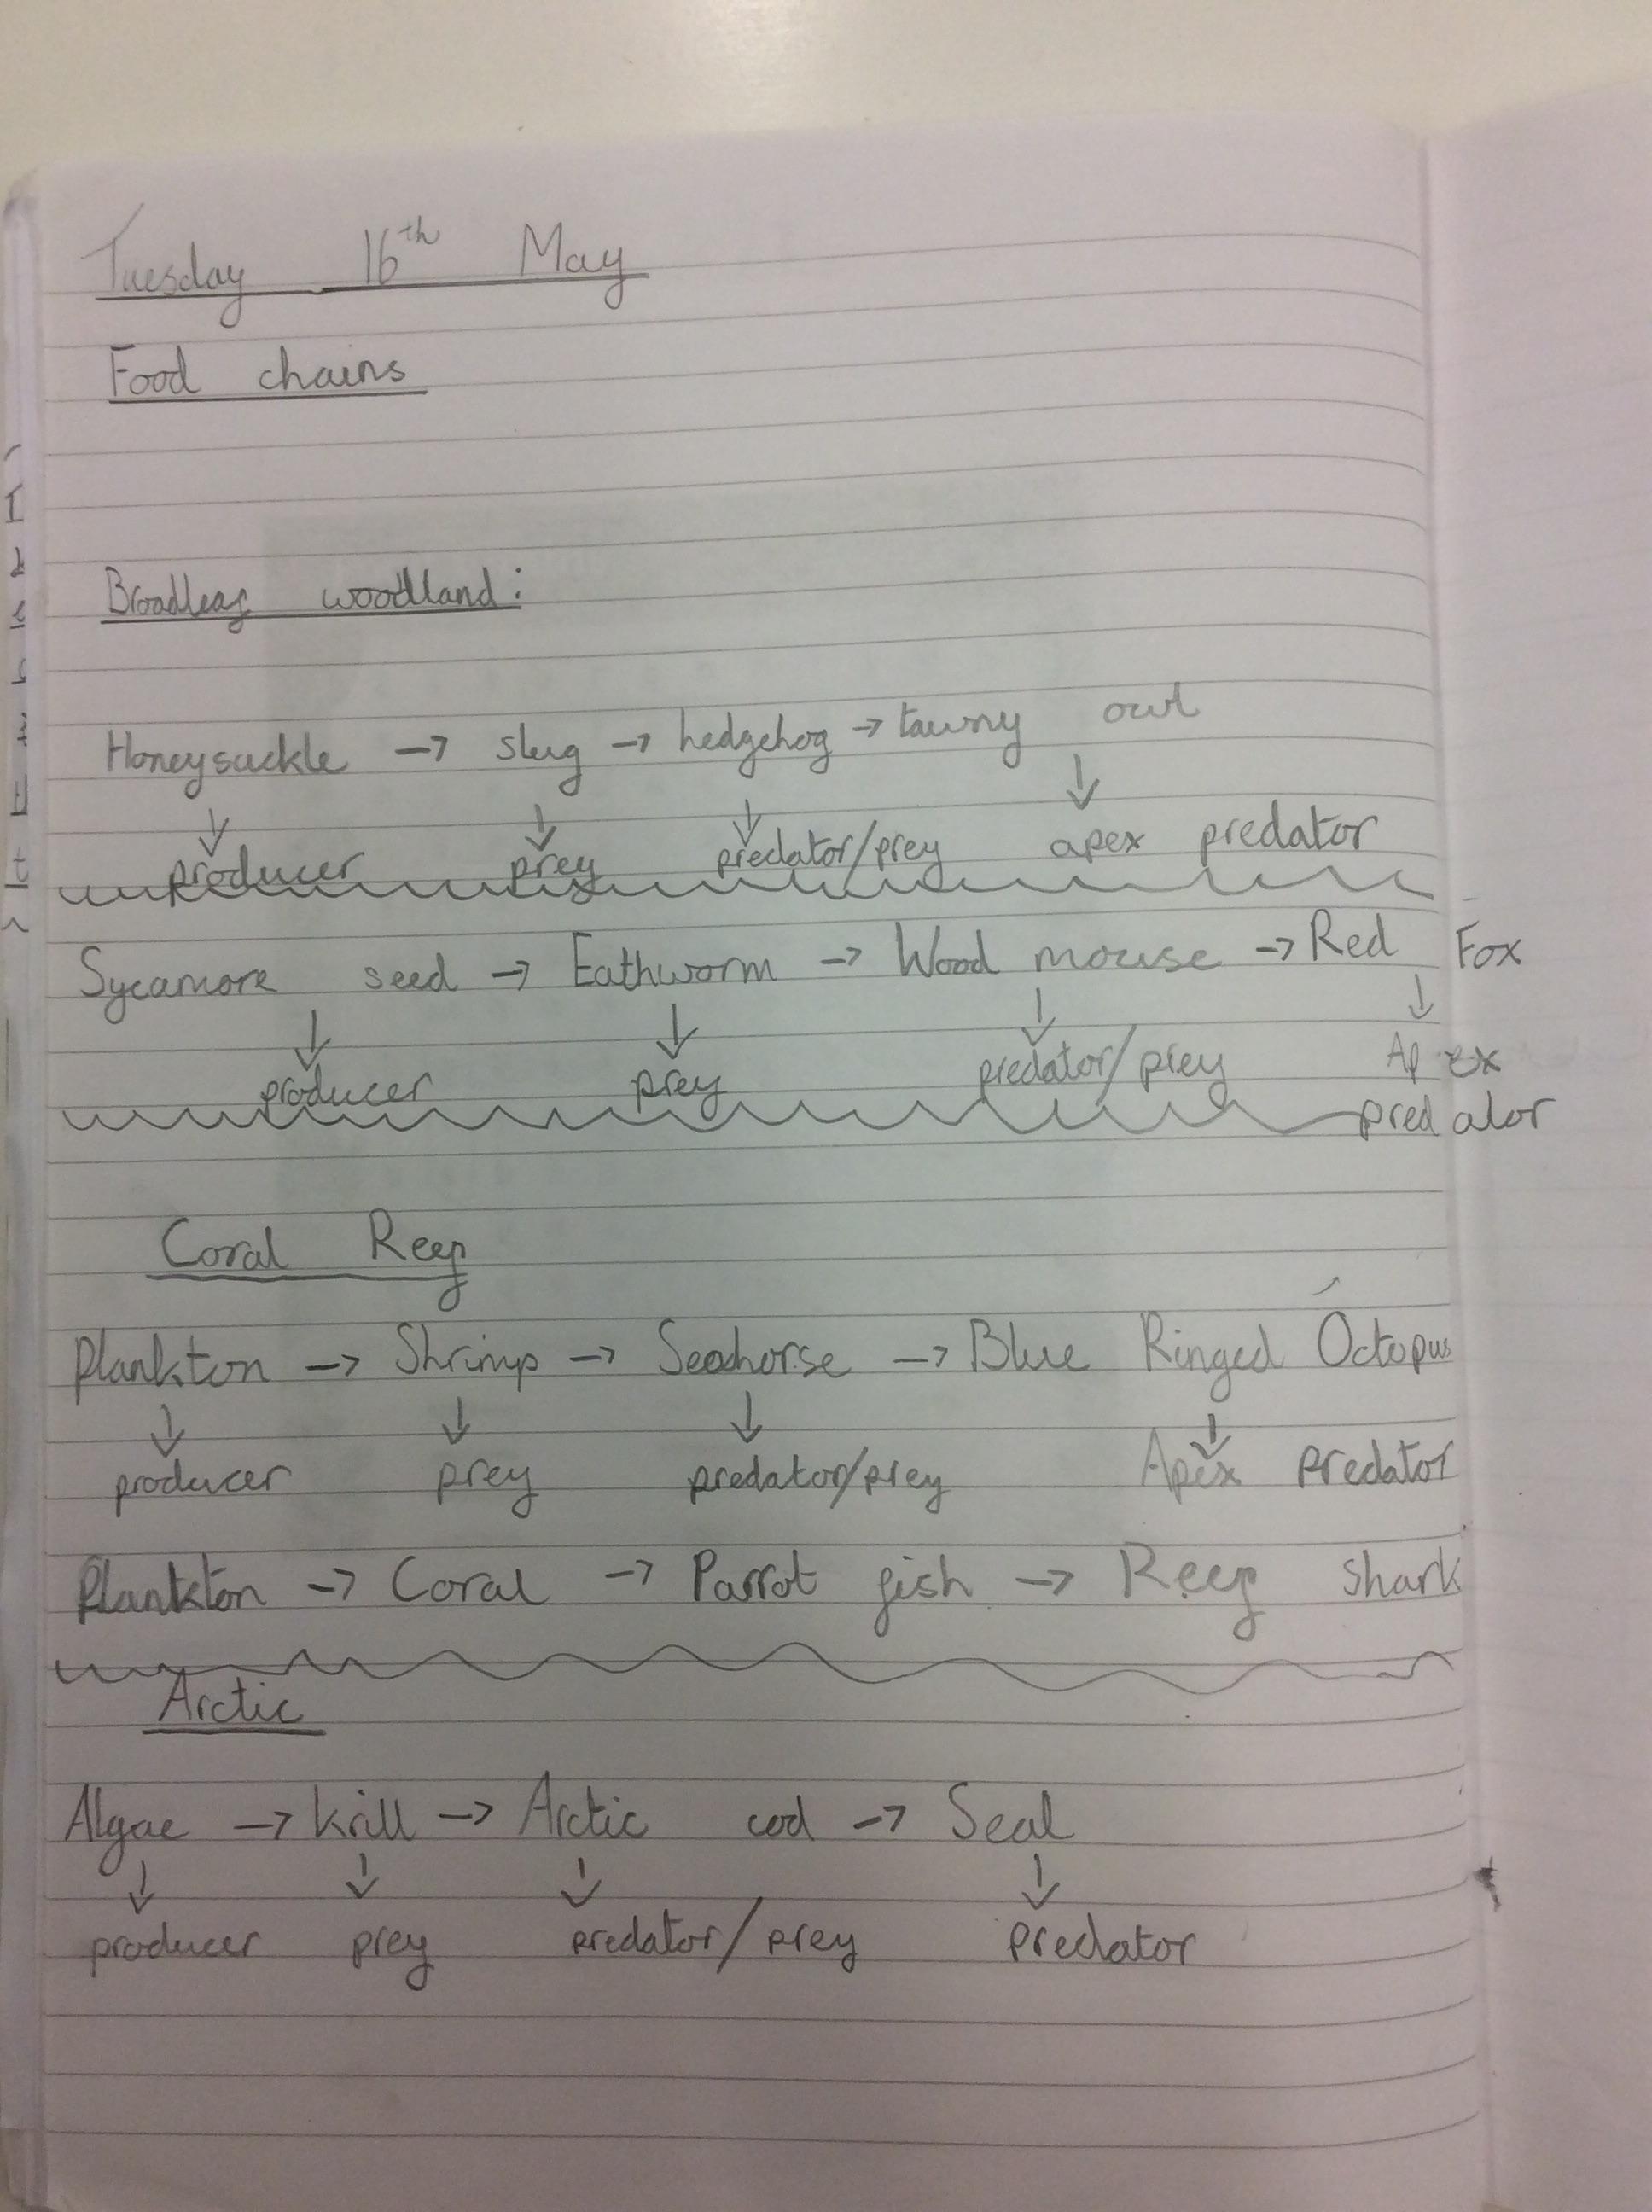 Tuesday 16th May
Food chains
Broadleaf woodland:
Honeysuckle → slug → hedgehog → tawny owl
↓ ↓ ↓ ↓
producer prey predator/prey apex predator
Sycamore seed → Eathworm → Wood mouse → Red Fox
↓ ↓ ↓ ↓
producer prey predator/prey Apex
predator
Coral Reef
Plankton → Shrimp → Seahorse → Blue Ringed Octopus
↓ ↓ ↓ ↓
producer prey predator/prey Apex predator
Plankton → Coral → Parrot fish → Reef shark
Arctic
Algae → krill → Arctic cod → Seal
↓ ↓ ↓ ↓
producer prey predator/prey predator